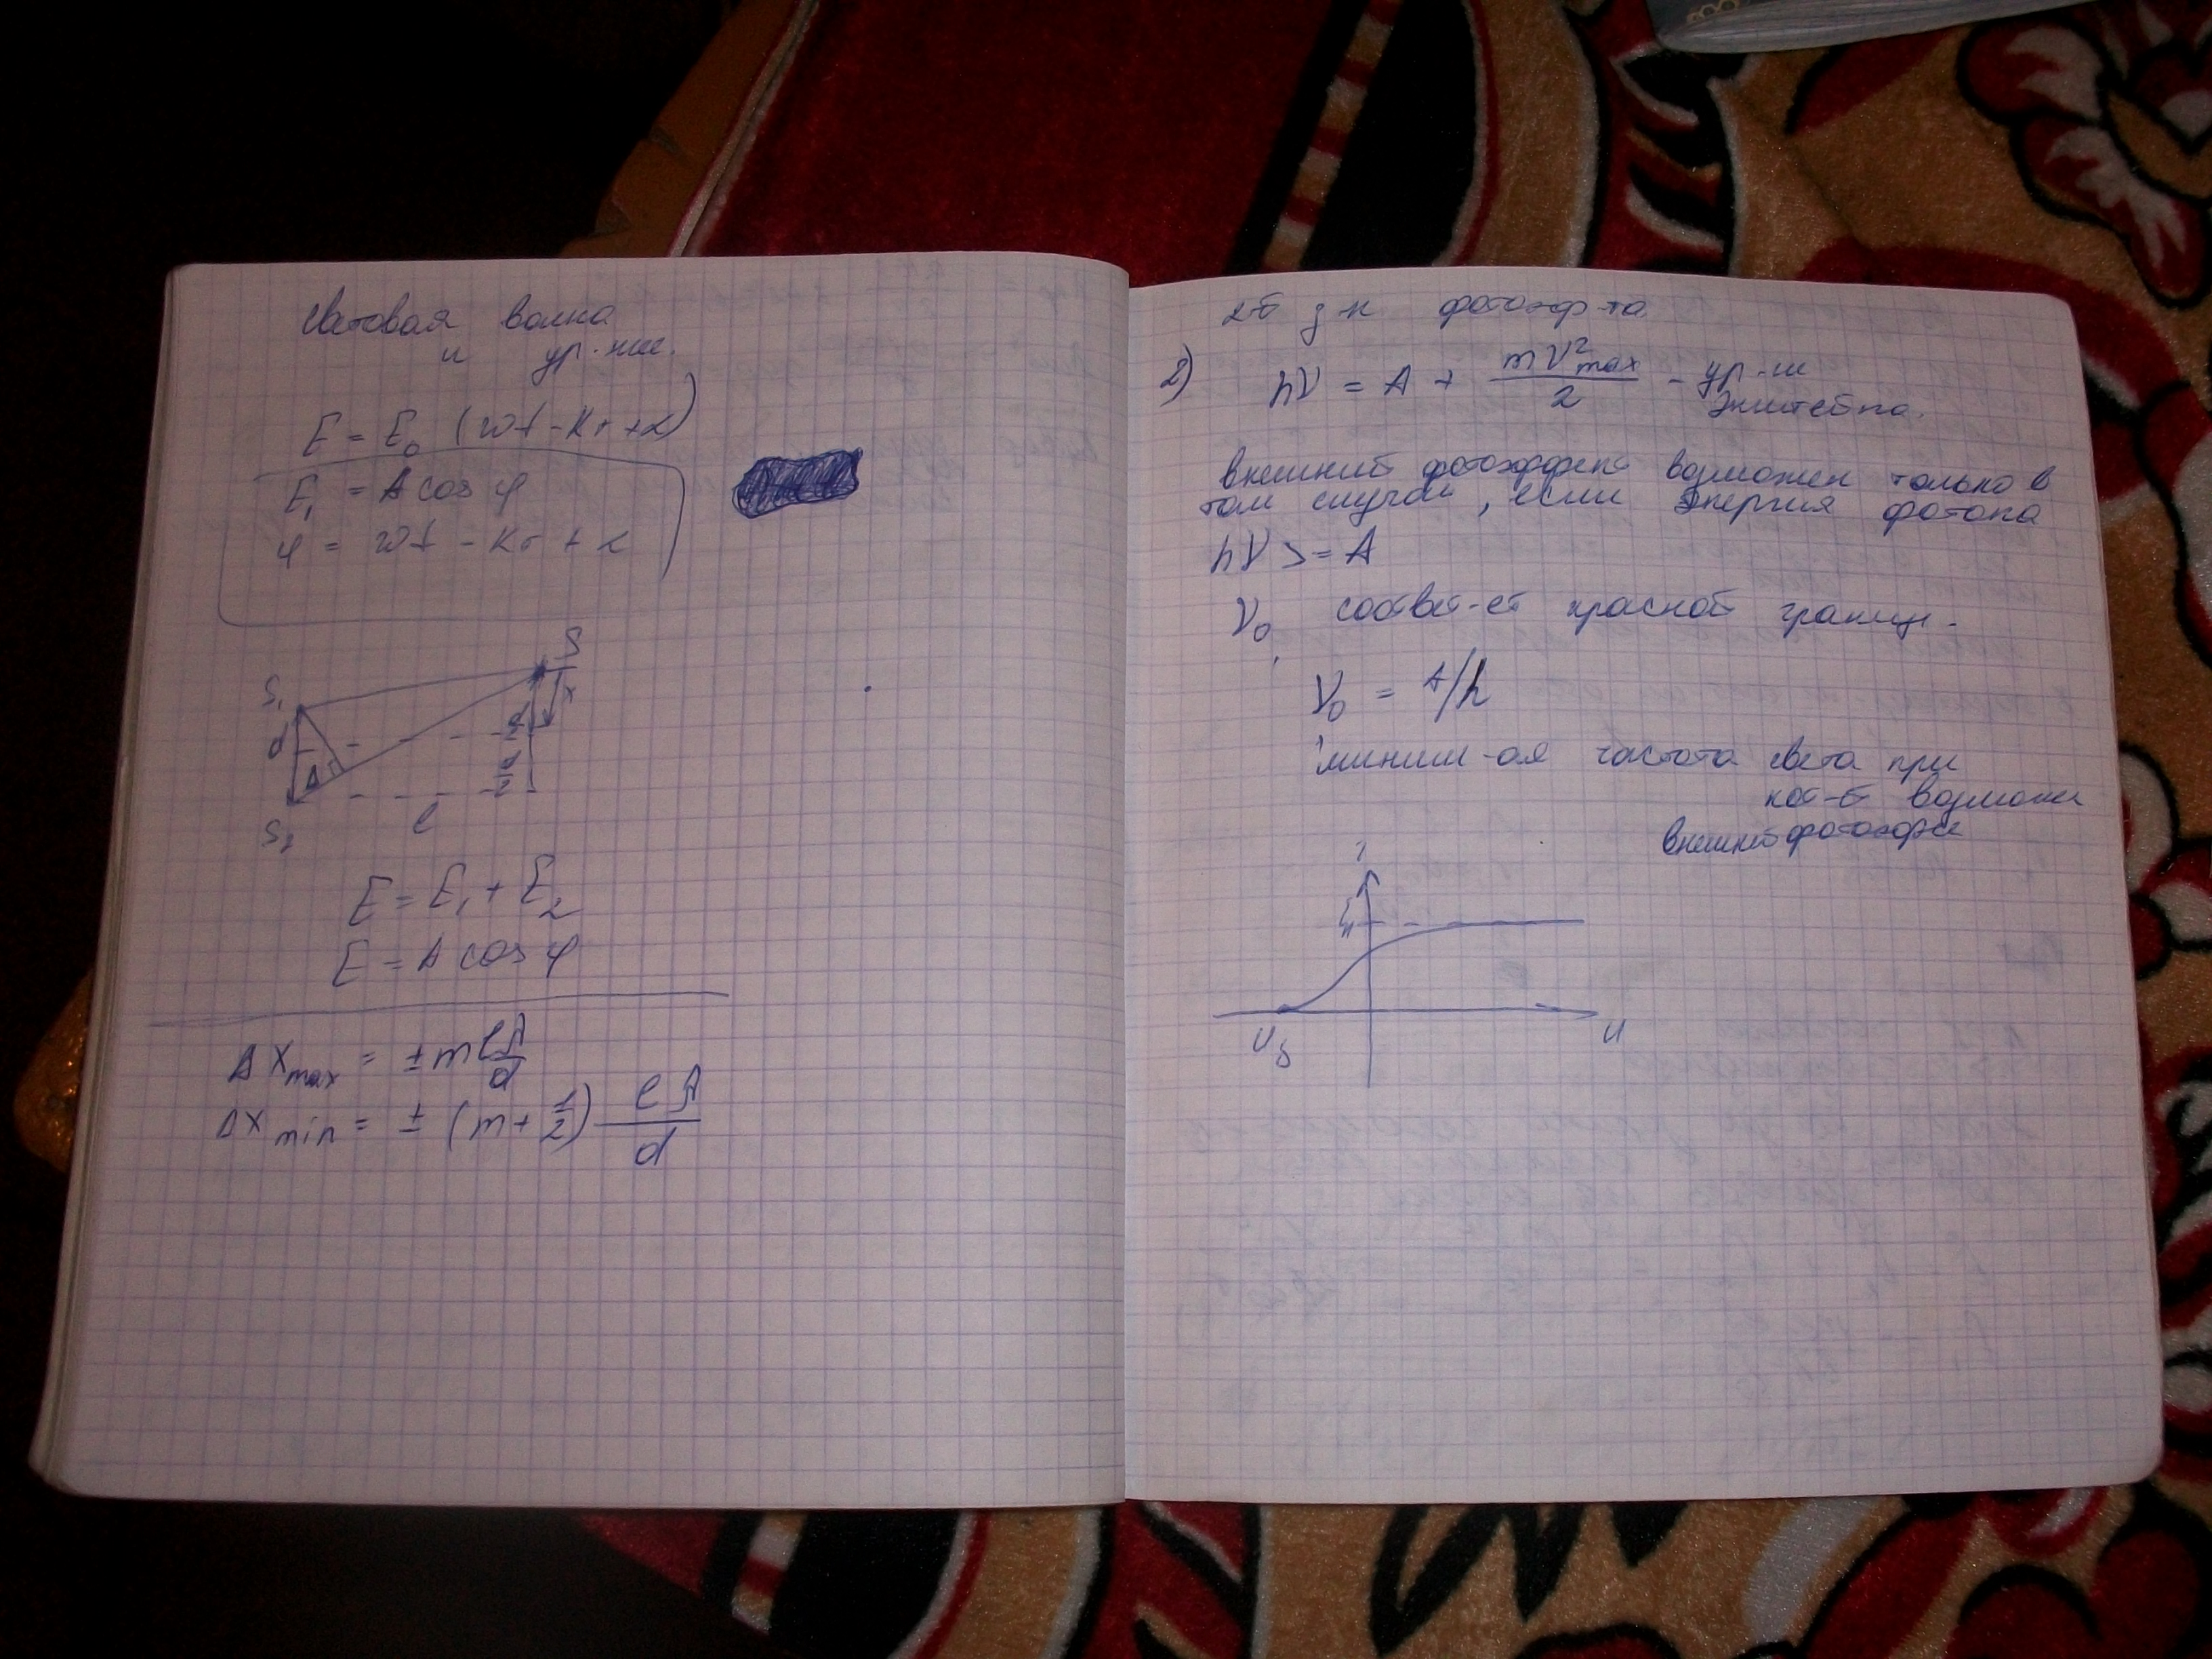 световая волна
и ур-ние.
E = E₀ (wt - kr + α)
E₁ = A cos φ
φ = wt - kr + α
S
S₁
x
d
d/2
Δ
d/2
l
S₂
E = E₁ + E₂
E = A cos φ
Δ x max = ± m lλ/d
Δx min = ± (m + 1/2) lλ/d
2-й з-н фотоэф-та
2) hν = A + mV²max/2 - ур-ие
Энштейна.
внешний фотоэффект возможен только в
том случаи, если Энергия фотона
hν >= A
ν₀ соответ-ет красной границе.
ν₀ = A/h
миним-ая частота света при
кот-й возможен
внешний фотоэффе
I
Iн
Uз
U